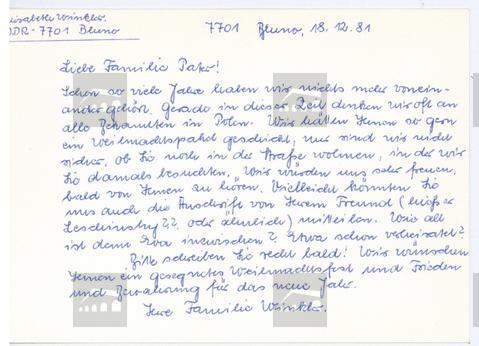 Elisabeth Winkler
DDR-7701 Bluno
7701 Bluno, 18.12.81
Liebe Familie Pater!
Schon so viel Jahre haben wir nichts mehr vonein-
ander gehört. Gerade in dieser Zeit denken wir oft an
alle Bekannten in Polen. Wir hätten Ihnen so gern
ein Weihnachtspaket geschickt, nur sind wir nicht
sicher, ob Sie noch in der Straße wohnen, in der wir
Sie damals besuchten. Wir würden uns sehr freuen,
bald von Ihnen zu hören. Vielleicht könnten Sie
uns auch die Anschrift von Ihrem Freund (hieß er
Lescinsky?? oder ähnlich) mitteilen. Wie alt
ist denn Eva inzwischen? Etwa schon verheiratet?
Bitte schreiben Sie recht bald! Wir wünschen
Ihnen ein gesegnetes Weihnachtsfest und Frieden
und Bewahrung für das neue Jahr.
Ihre Familie Winkler.